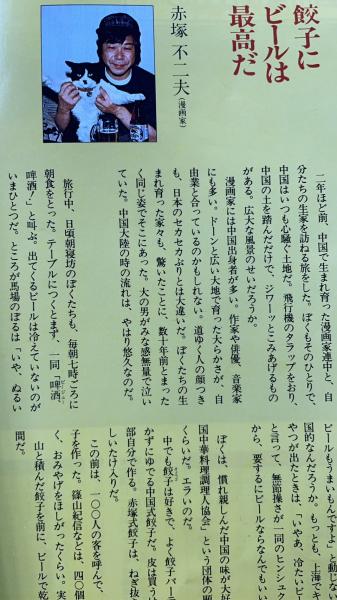 餃子に
ビールは
最高だ
赤塚 不二夫（漫画家）
二年ほど前、中国で生まれ育った漫画家連中と、自
分たちの生家を訪ねる旅をした。ぼくもそのひとりで、
中国はいつも心騒ぐ土地だ。飛行機のタラップをおり、
中国の土を踏んだだけで、ジワーッとこみあげるもの
がある。広大な風景のせいだろうか。
漫画家には中国出身者が多い。作家や俳優、音楽家
にも多い。ドーンと広い大地で育った大らかさが、自
由業と合っているのかもしれない。道ゆく人の顔つき
も、日本のセカセカぶりとは大違いだ。ぼくたちの生
まれ育った家々も、驚いたことに、数十年前とまった
く同じ姿でそこにあった。大の男がみな感無量で泣い
ていた。中国大陸の時の流れは、やはり悠久なのだ。
旅行中、日頃朝寝坊のぼくたちも、毎朝七時ごろに
朝食をとった。テーブルにつくとまず、一同「啤酒、
啤酒！」と叫ぶ。出てくるビールは冷えていないのが
いまひとつだ。ところが馬場のぼるは「いや、ぬるい
ビールもうまいもんですよ」と動じな
国的なんだろうか。もっとも、上海でキ
やつが出たときは、「いやあ、冷たいビー
と言って、無節操さが一同のヒンシュク
から、要するにビールならなんでもいい
ぼくは、慣れ親しんだ中国の味が大好
国中華料理調理人協会」という団体の
くらいだ。エラいのだ。
中でも餃子は好きで、よく餃子パーテ
かずにゆでる中国式餃子だ。皮は買う
部自分で作る。赤塚式餃子は、ねぎ抜
しいたけ入りだ。
この前は、一〇〇人の客を呼んで、
子を作った。篠山紀信などは、四〇個
く、おみやげをほしがったくらい。実
山と積んだ餃子を前に、ビールで乾
間だ。